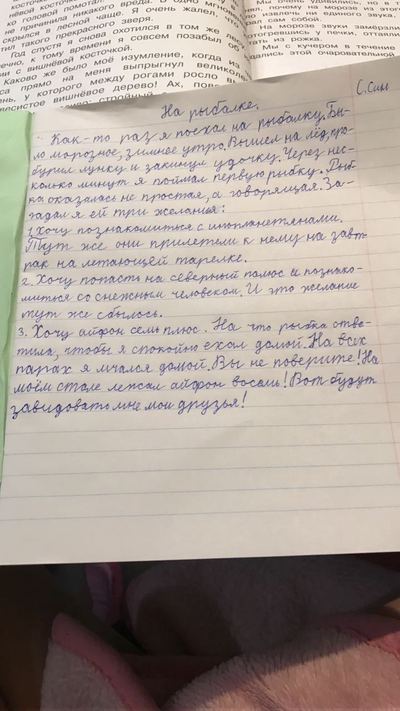 косточкой
не причинила никакого вреда. В одно мгнов
скрылся в лесной чаще. Я очень жалел, что
тил такого прекрасного зверя.
год спустя я снова охотился в том же лесу
ечно, к тому времени я совсем позабыл об
с вишнёвой косточкой.
Каково же было моё изумление, когда из
са прямо на меня выпрыгнул великоле
ень, у которого между рогами росло вы
весистое вишнёвое дерево! Ах, пове
Мы очень удивились, но в т
почему на морозе из этог
извлечь ни единого звука.
рал сам собой.
На морозе звуки замёрзли
отогревшись у печки, оттаяли
ать из рожка.
Мы с кучером в течение
дались этой очаровательной
С. Сим
На рыбалке.
Как-то раз я поехал на рыбалку. Бы-
ло морозное, зимнее утро. Вышел на лёд, про-
бурил лунку и закинул удочку. Через нес-
колько минут я поймал первую рыбку. Рыб-
ка оказалась не простая, а говорящая. За-
гадал я ей три желания:
1. Хочу познакомиться с инопланетянами.
Тут же они прилетели к нему на завт-
рак на летающей тарелке.
2. Хочу попасть на северный полюс и познако-
миться со снежным человеком. И это желание
тут же сбылось.
3. Хочу айфон семь плюс. На что рыбка отве-
тила, чтобы я спокойно ехал домой. На всех
парах я мчался домой. Вы не поверите! На
моём столе лежал айфон восемь! Вот будут
завидовать мне мои друзья!